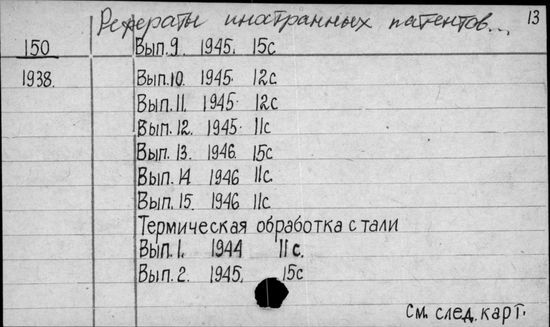 Рефераты иностранных патентов... 13
150 Вып. 9 1945. 15с
1938. Вып. 10. 1945. 12с
Вып. 11. 1945. 12с
Вып. 12. 1945. 11с
Вып. 13. 1946. 15с
Вып. 14 1946 11с.
Вып. 15. 1946 11с.
Термическая обработка стали
Вып. 1. 1944 11с.
Вып. 2. 1945. 15с
См. след. карт.